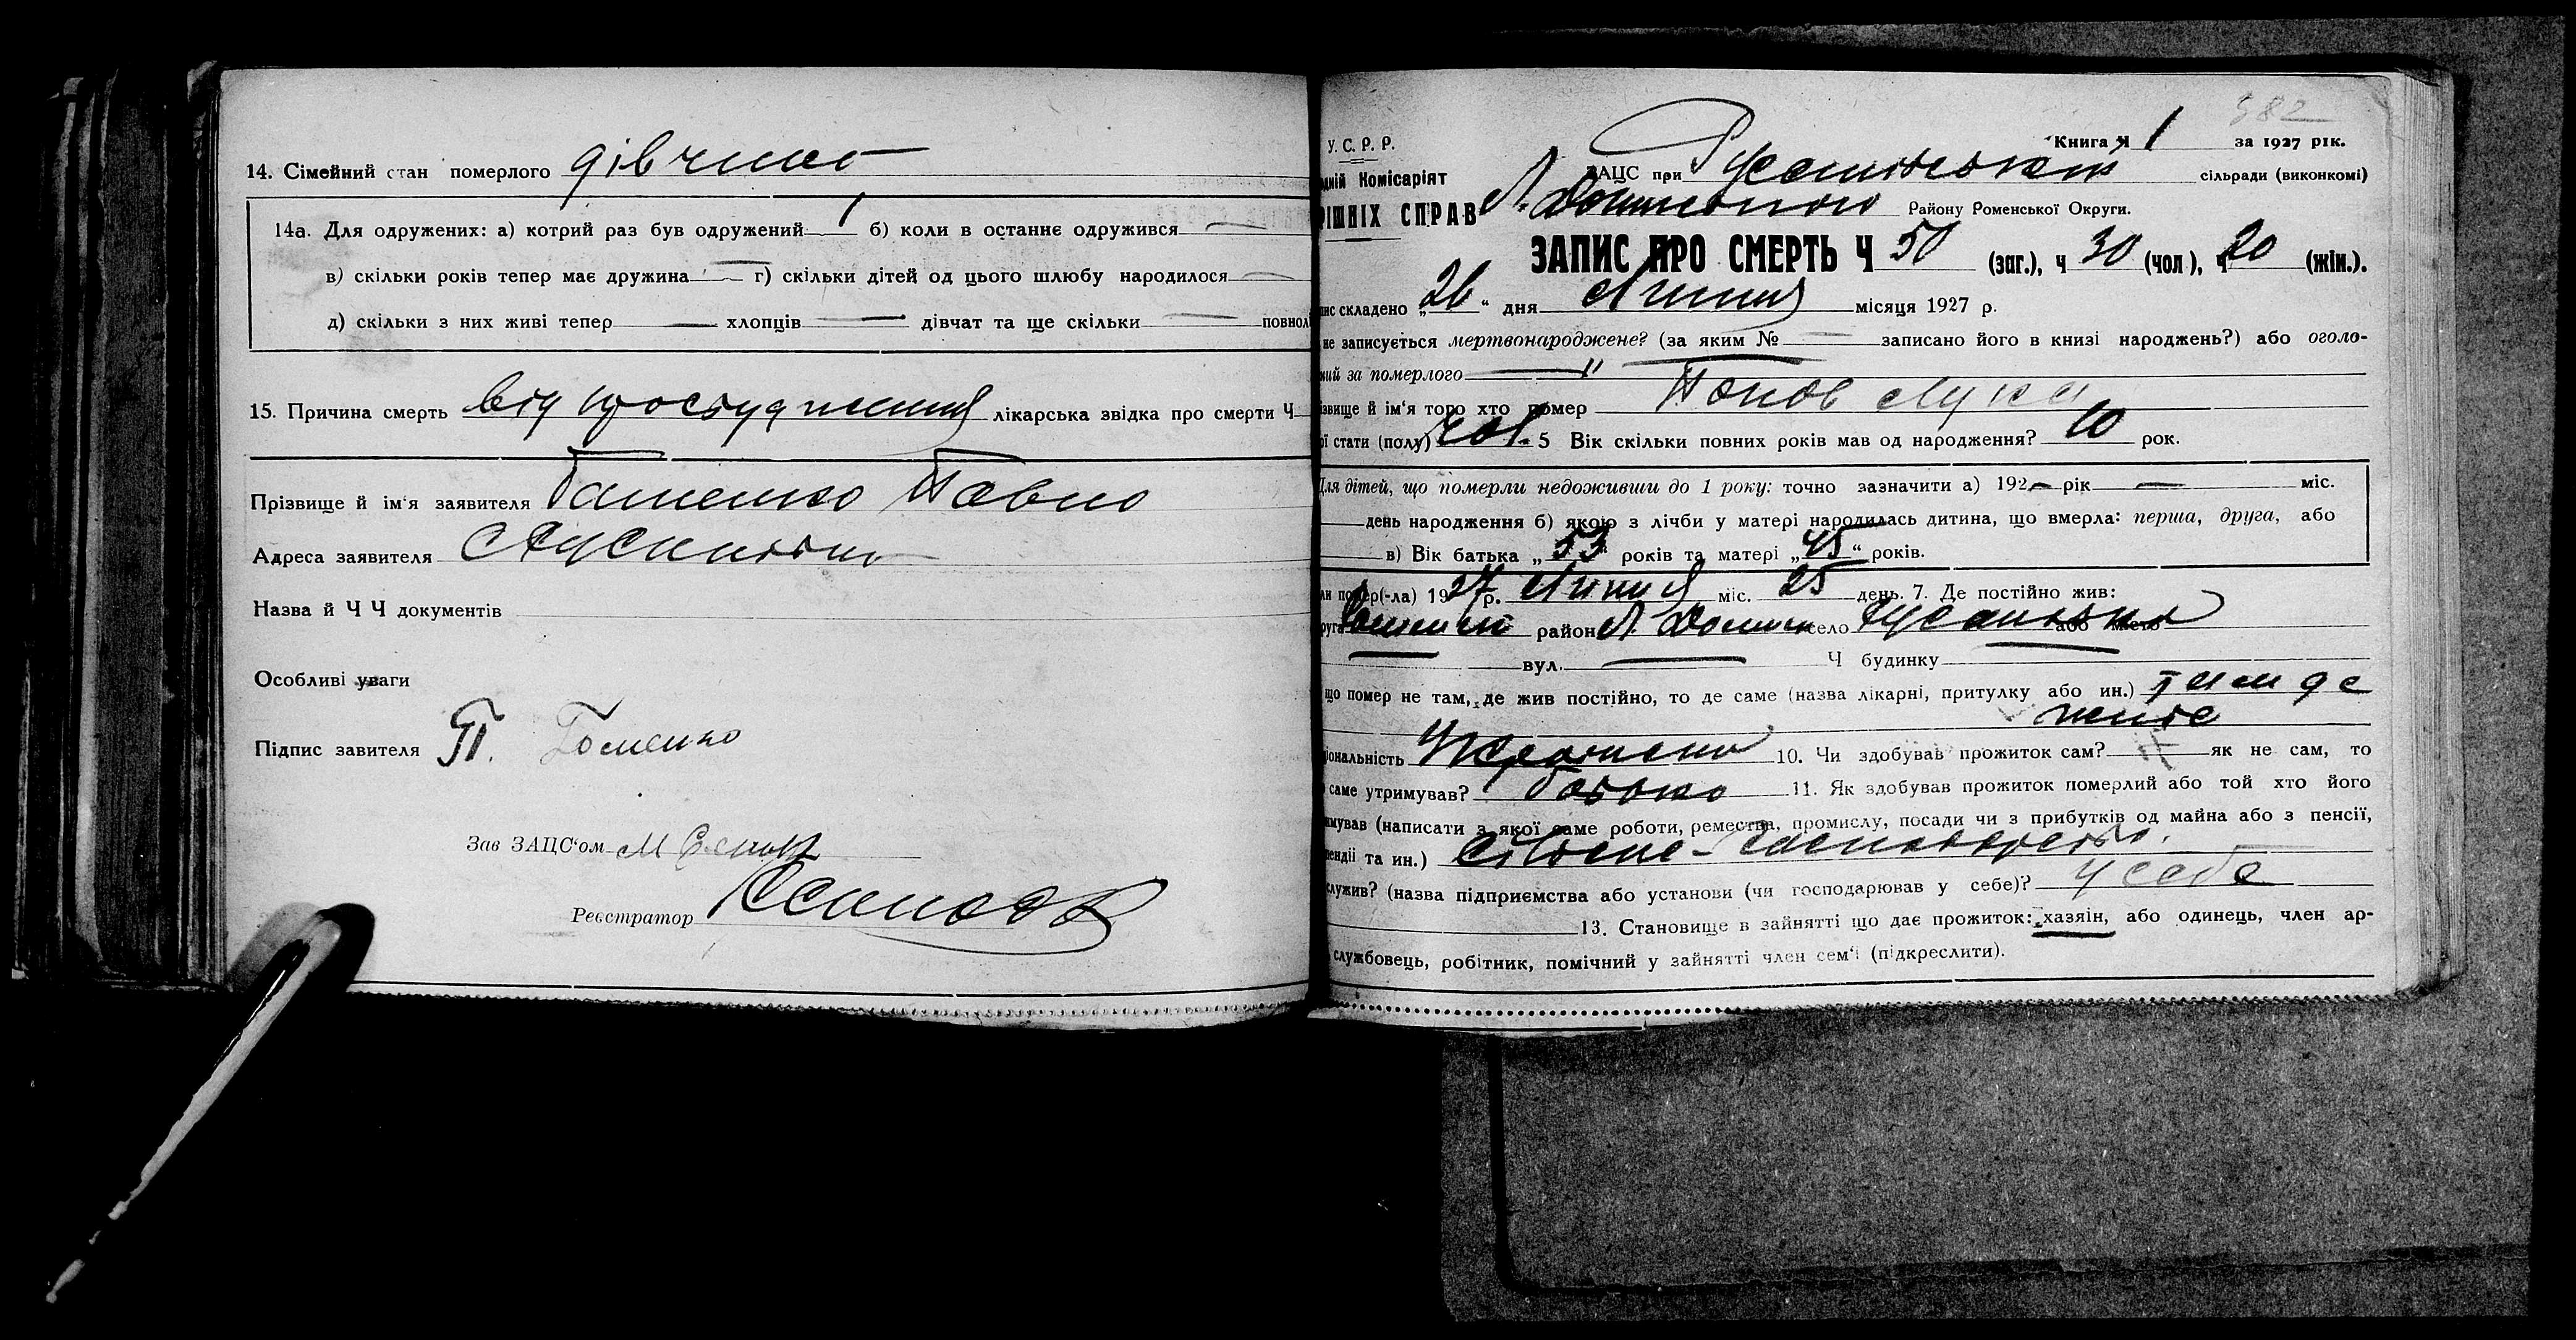 14. Сімейний стан померлого дівчина
14а. Для одружених: а) котрий раз був одружений 1 б) коли в останнє одружився —
в) скільки років тепер має дружина — г) скільки дітей од цього шлюбу народилося —
д) скільки з них живі тепер — хлопців — дівчат та ще скільки — повнол
15. Причина смерть від простудження лікарська звідка про смерти Ч
Прізвище й ім'я заявителя Павло
Адреса заявителя
Назва й Ч Ч документів
Особливі уваги
Підпис завителя П.
Зав ЗАЦС'ом
Реєстратор
382
У. С. Р. Р. Книга Ч 1 за 1927 рік.
одній Комісаріят ЗАЦС при Русанівській сільради (виконкомі)
РІШНІХ СПРАВ Л. Долинського Району Роменської Округи.
ЗАПИС ПРО СМЕРТЬ Ч 50 (заг.), ч 30 (чол), ч 20 (жін.).
пис складено „26" дня Липня місяця 1927 р.
не записується мертвонароджене? (за яким № — записано його в книзі народжень?) або оголо-
ний за померлого — "
ізвище й ім'я того хто помер Попов Лука
ої стати (полу) чол. 5 Вік скільки повних років мав од народження? 10 рок.
Для дітей, що померли недоживши до 1 року: точно зазначити а) 192 — рік — міс.
день народження б) якою з лічби у матері народилась дитина, що вмерла: перша, друга, або
в) Вік батька „53 років та матері „45" років.
ли помер(-ла) 1927 р. Липня міс. 25 день. 7. Де постійно жив:
руга Роменськ район Л. Долинськ село Русанівка або місто
вул. — Ч будинку
що помер не там, де жив постійно, то де саме (назва лікарні, притулку або ин.) там де
жив
ціональність Українець 10. Чи здобував прожиток сам? як не сам, то
саме утримував? батько 11. Як здобував прожиток померлий або той хто його
имував (написати з якої саме роботи, ремества, промислу, посади чи з прибутків од майна або з пенсії,
пендії та ин.) сільське-господарство.
служив? (назва підприємства або установи (чи господарював у себе)? у себе
13. Становище в зайнятті що дає прожиток: хазяїн, або одинець, член ар-
службовець, робітник, помічний у зайнятті член сем'ї (підкреслити).